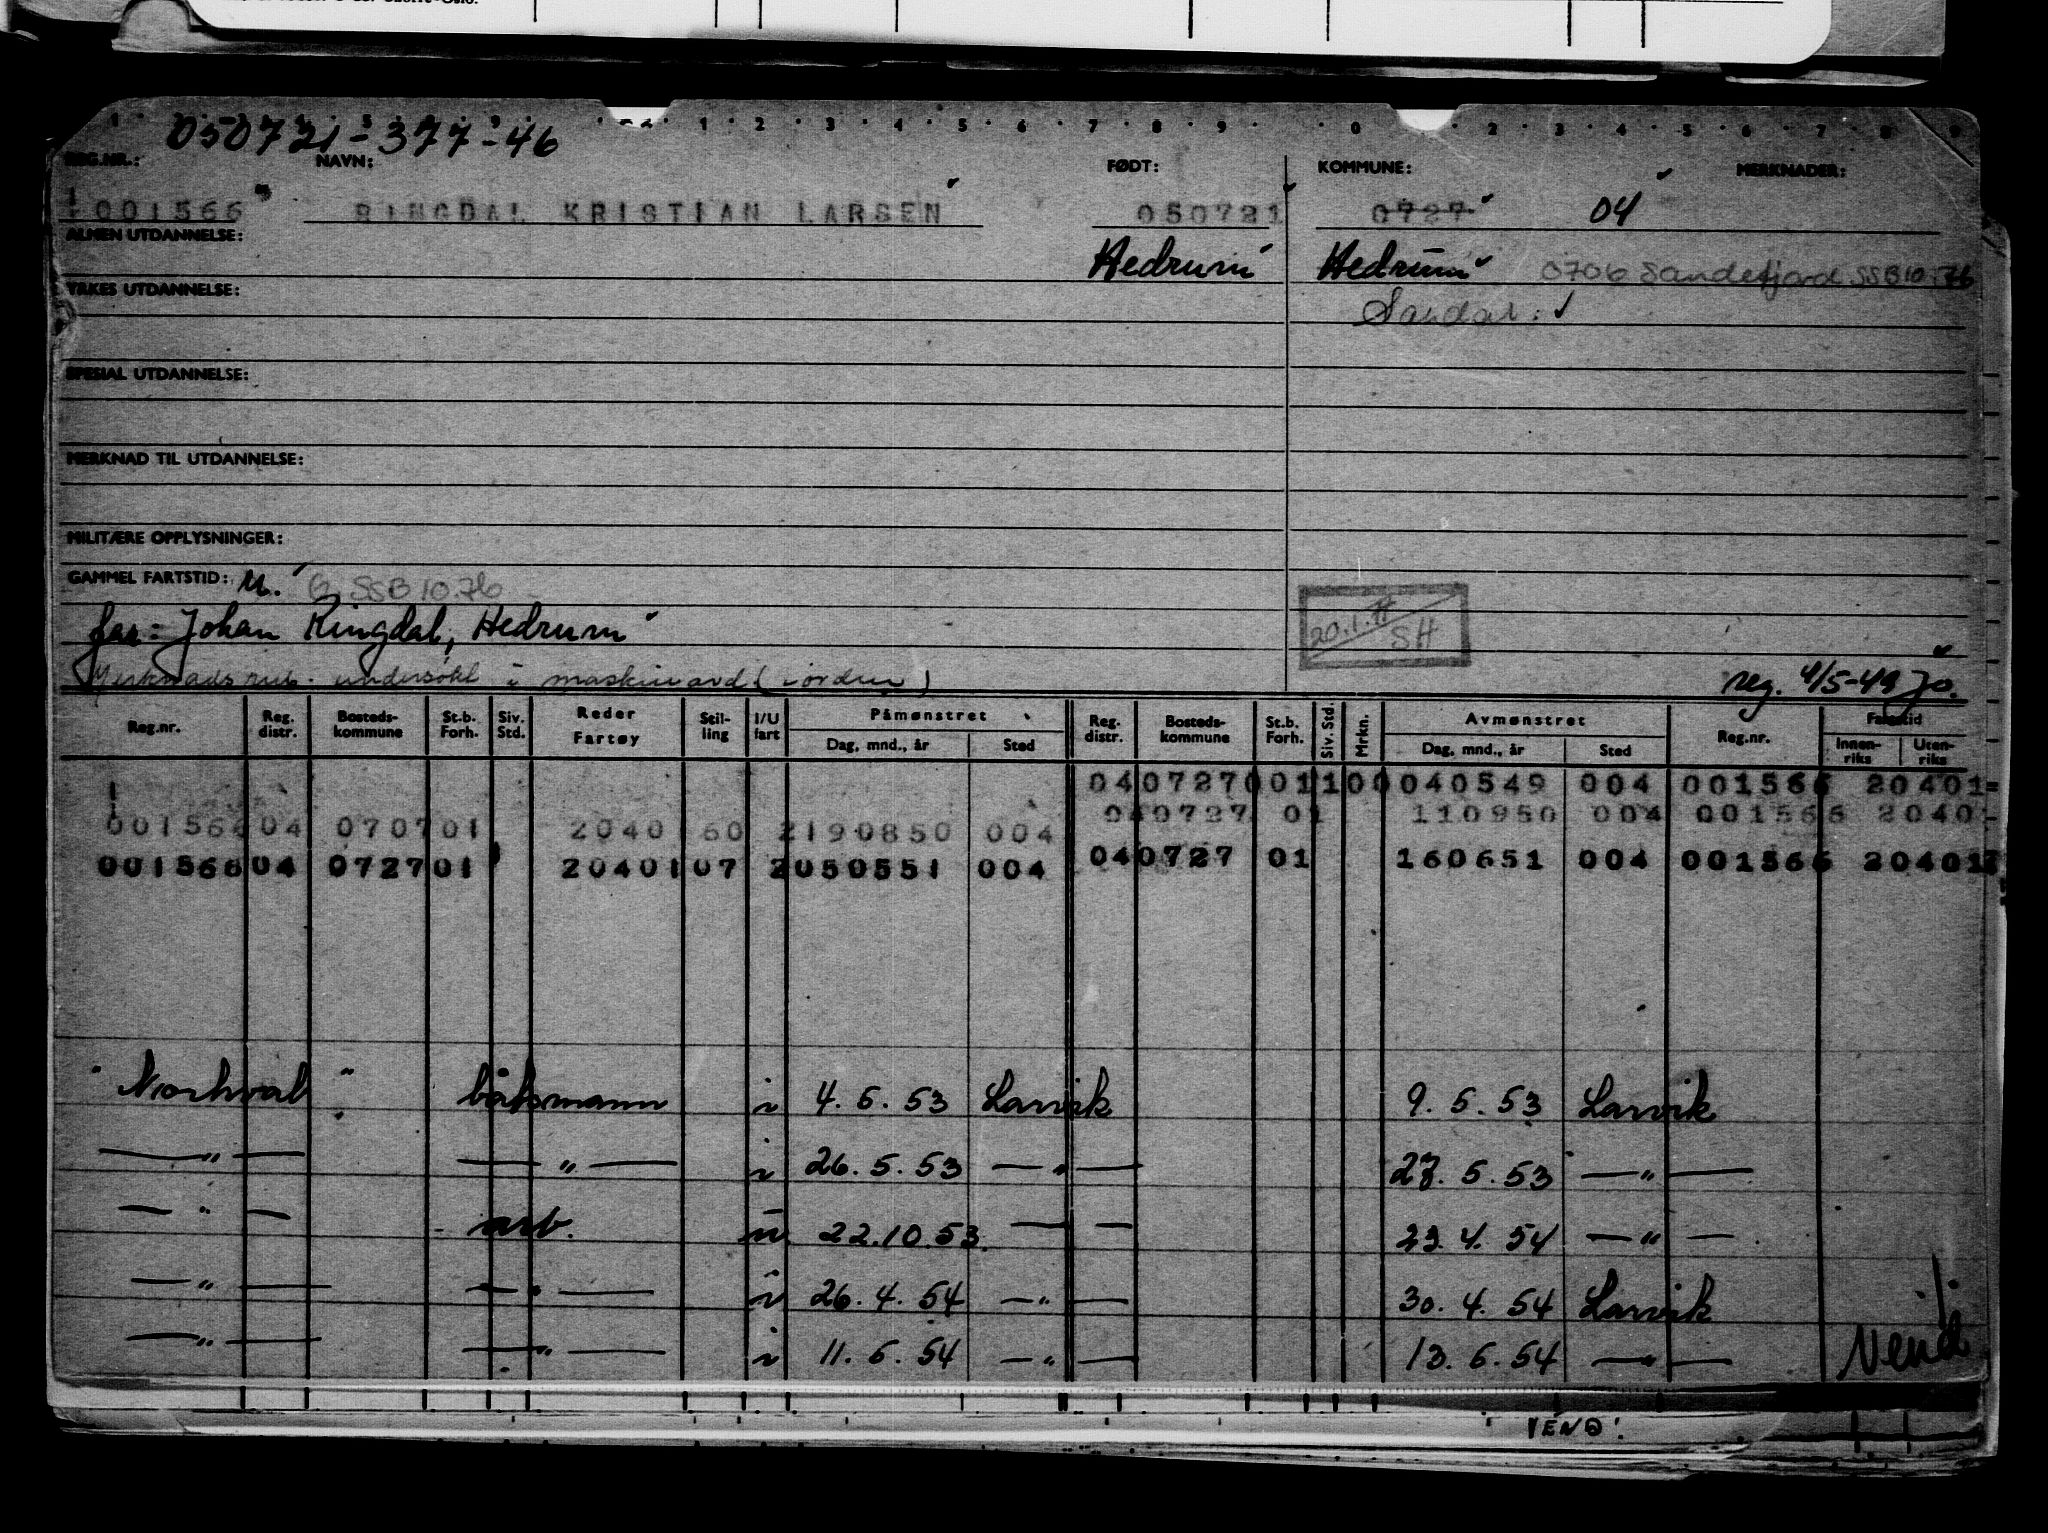 050721-377-46
REG.NR.: NAVN: FØDT: KOMMUNE: MERKNADER:
001566 RINGDAL KRISTIAN LARSEN 050721 0727 04
ALMEN UTDANNELSE: Hedrum Hedrum 0706 Sandefjord SSB 10.76
YRKES UTDANNELSE:
SPESIAL UTDANNELSE:
MERKNAD TIL UTDANNELSE:
MILITÆRE OPPLYSNINGER:
GAMMEL FARTSTID: SSB 10.76
far = Johan Ringdal, Hedrum
SH
Merknads rub. undersøkt i maskinavd (iorden)
reg. 4/5-49 Jo.
Reg.nr. Reg. distr. Bosteds-kommune St.b. Forh. Siv. Std. Reder Fartøy Stil-ling I/U fart Påmønstret Dag, mnd., år Sted Reg. distr. Bosteds-kommune St.b. Forh. Siv. Std. Mrkn. Avmønstret Dag, mnd., år Sted Reg.nr. Fartstid Innen-riks Uten-riks
040727001100040549 004 001566 20401
040727 01 110950 004 001566 20401
001566 04 0707 01 2040 60 2190850 004
001566 04 0727 01 20401 07 2050551 004 040727 01 160651 004 001566 20401
"Norhval" båtsmann i 4. 5. 53 Larvik 9. 5. 53 Larvik
—"— —"— i 26. 5. 53 —"— 27. 5. 53 —"—
—"— arb. u 22.10.53. — — 23. 4. 54 —"—
—"— —"— i 26. 4. 54 —"— 30. 4. 54 Larvik
—"— —"— i 11. 6. 54 —"— 13. 6. 54 —"—
Vend!
VEND!